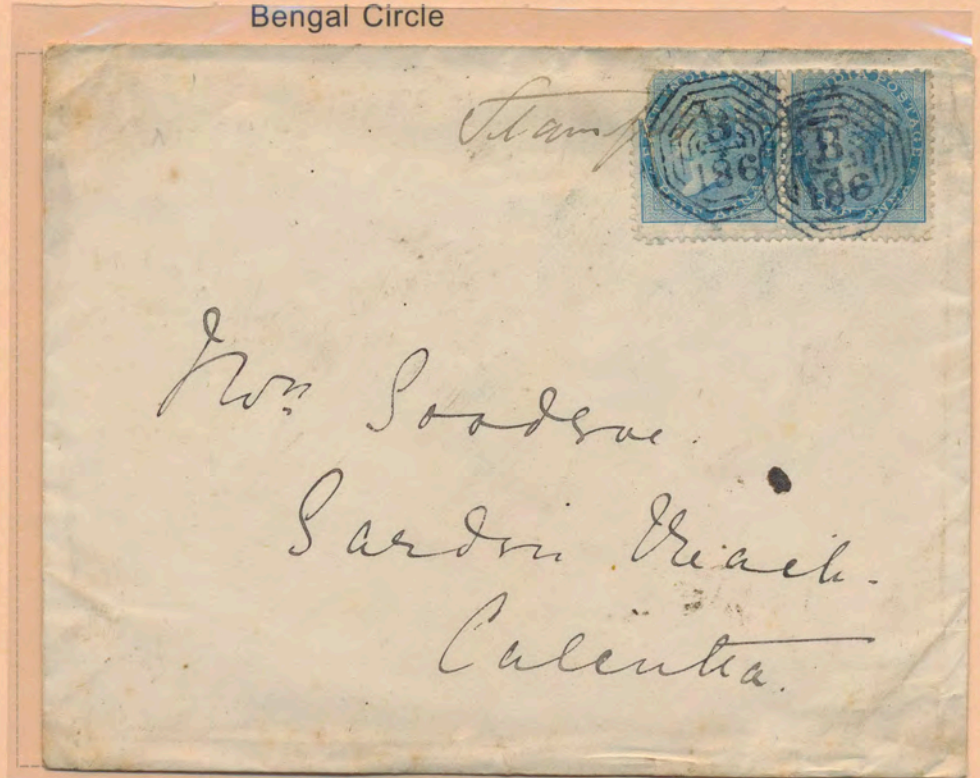 Bengal Circle
Stamp
B
186
B
186
Mrs Goodeve.
Garden Reach.
Calcutta.